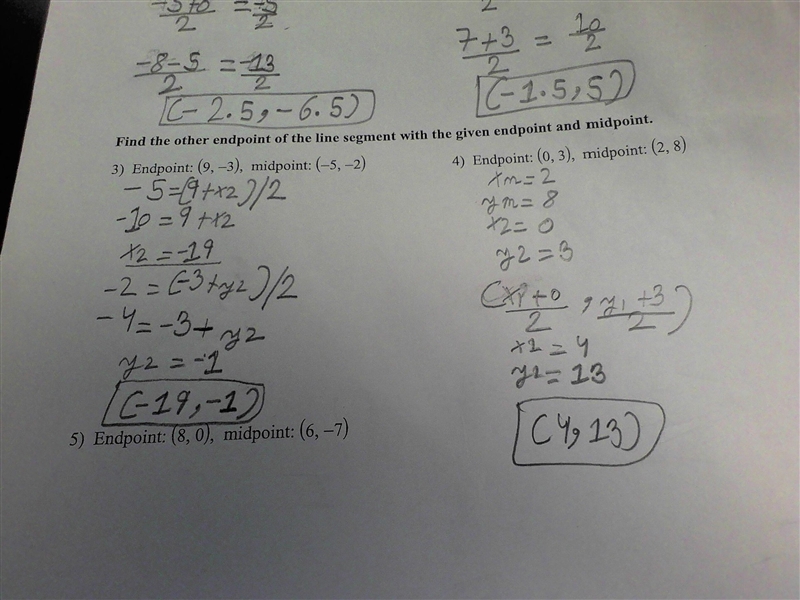 -5+0/2 = -5/2
-8-5/2 = -13/2
(-2.5, -6.5)
2
7+3/2 = 10/2
(-1.5, 5)
Find the other endpoint of the line segment with the given endpoint and midpoint.
3) Endpoint: (9, −3), midpoint: (−5, −2)
-5=(9+x2)/2
-10=9+x2
x2=-19
-2=(-3+y2)/2
-4=-3+y2
y2=-1
(-19,-1)
4) Endpoint: (0, 3), midpoint: (2, 8)
xm=2
ym=8
x2=0
y2=3
(x1+0/2, y1+3/2)
x1=4
y1=13
(4,13)
5) Endpoint: (8, 0), midpoint: (6, −7)